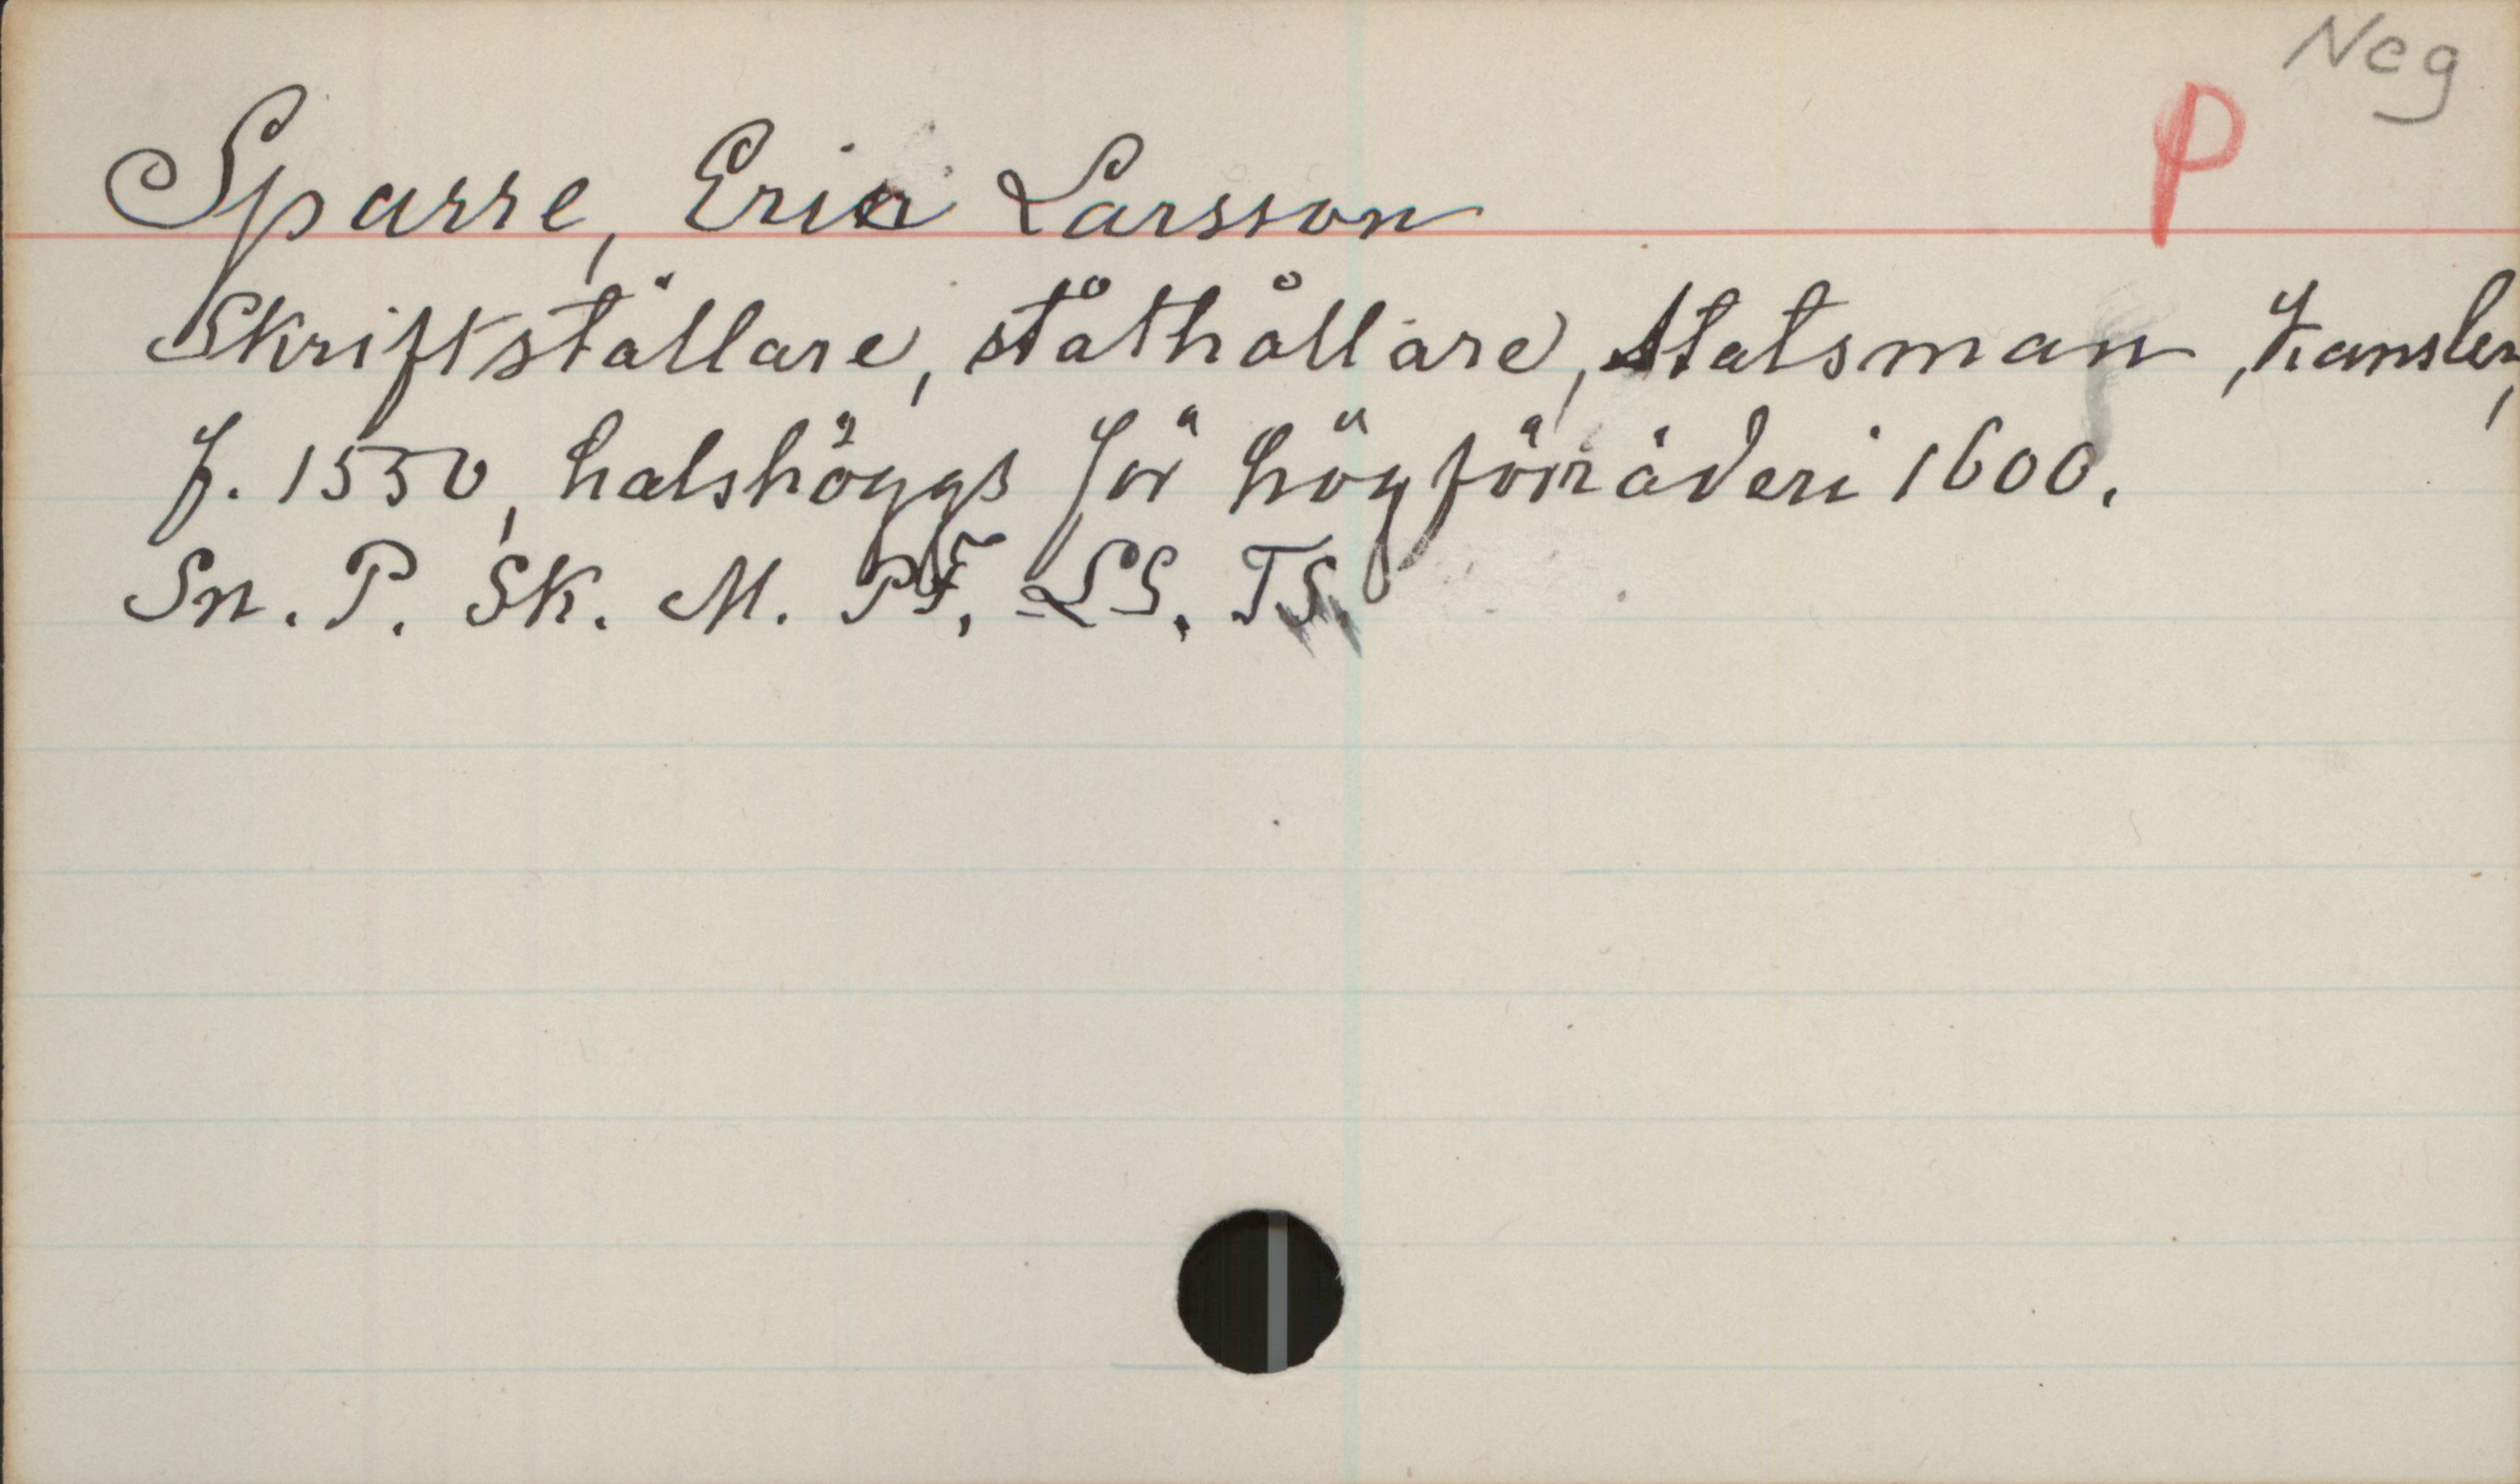 Neg
P
Sparre, Eric Larsson
Skriftställare, ståthållare, statsman, kansler,
f. 1550, halshöggs för högförräderi 1600.
Sn. P. SK. M. PF. LS. TS.